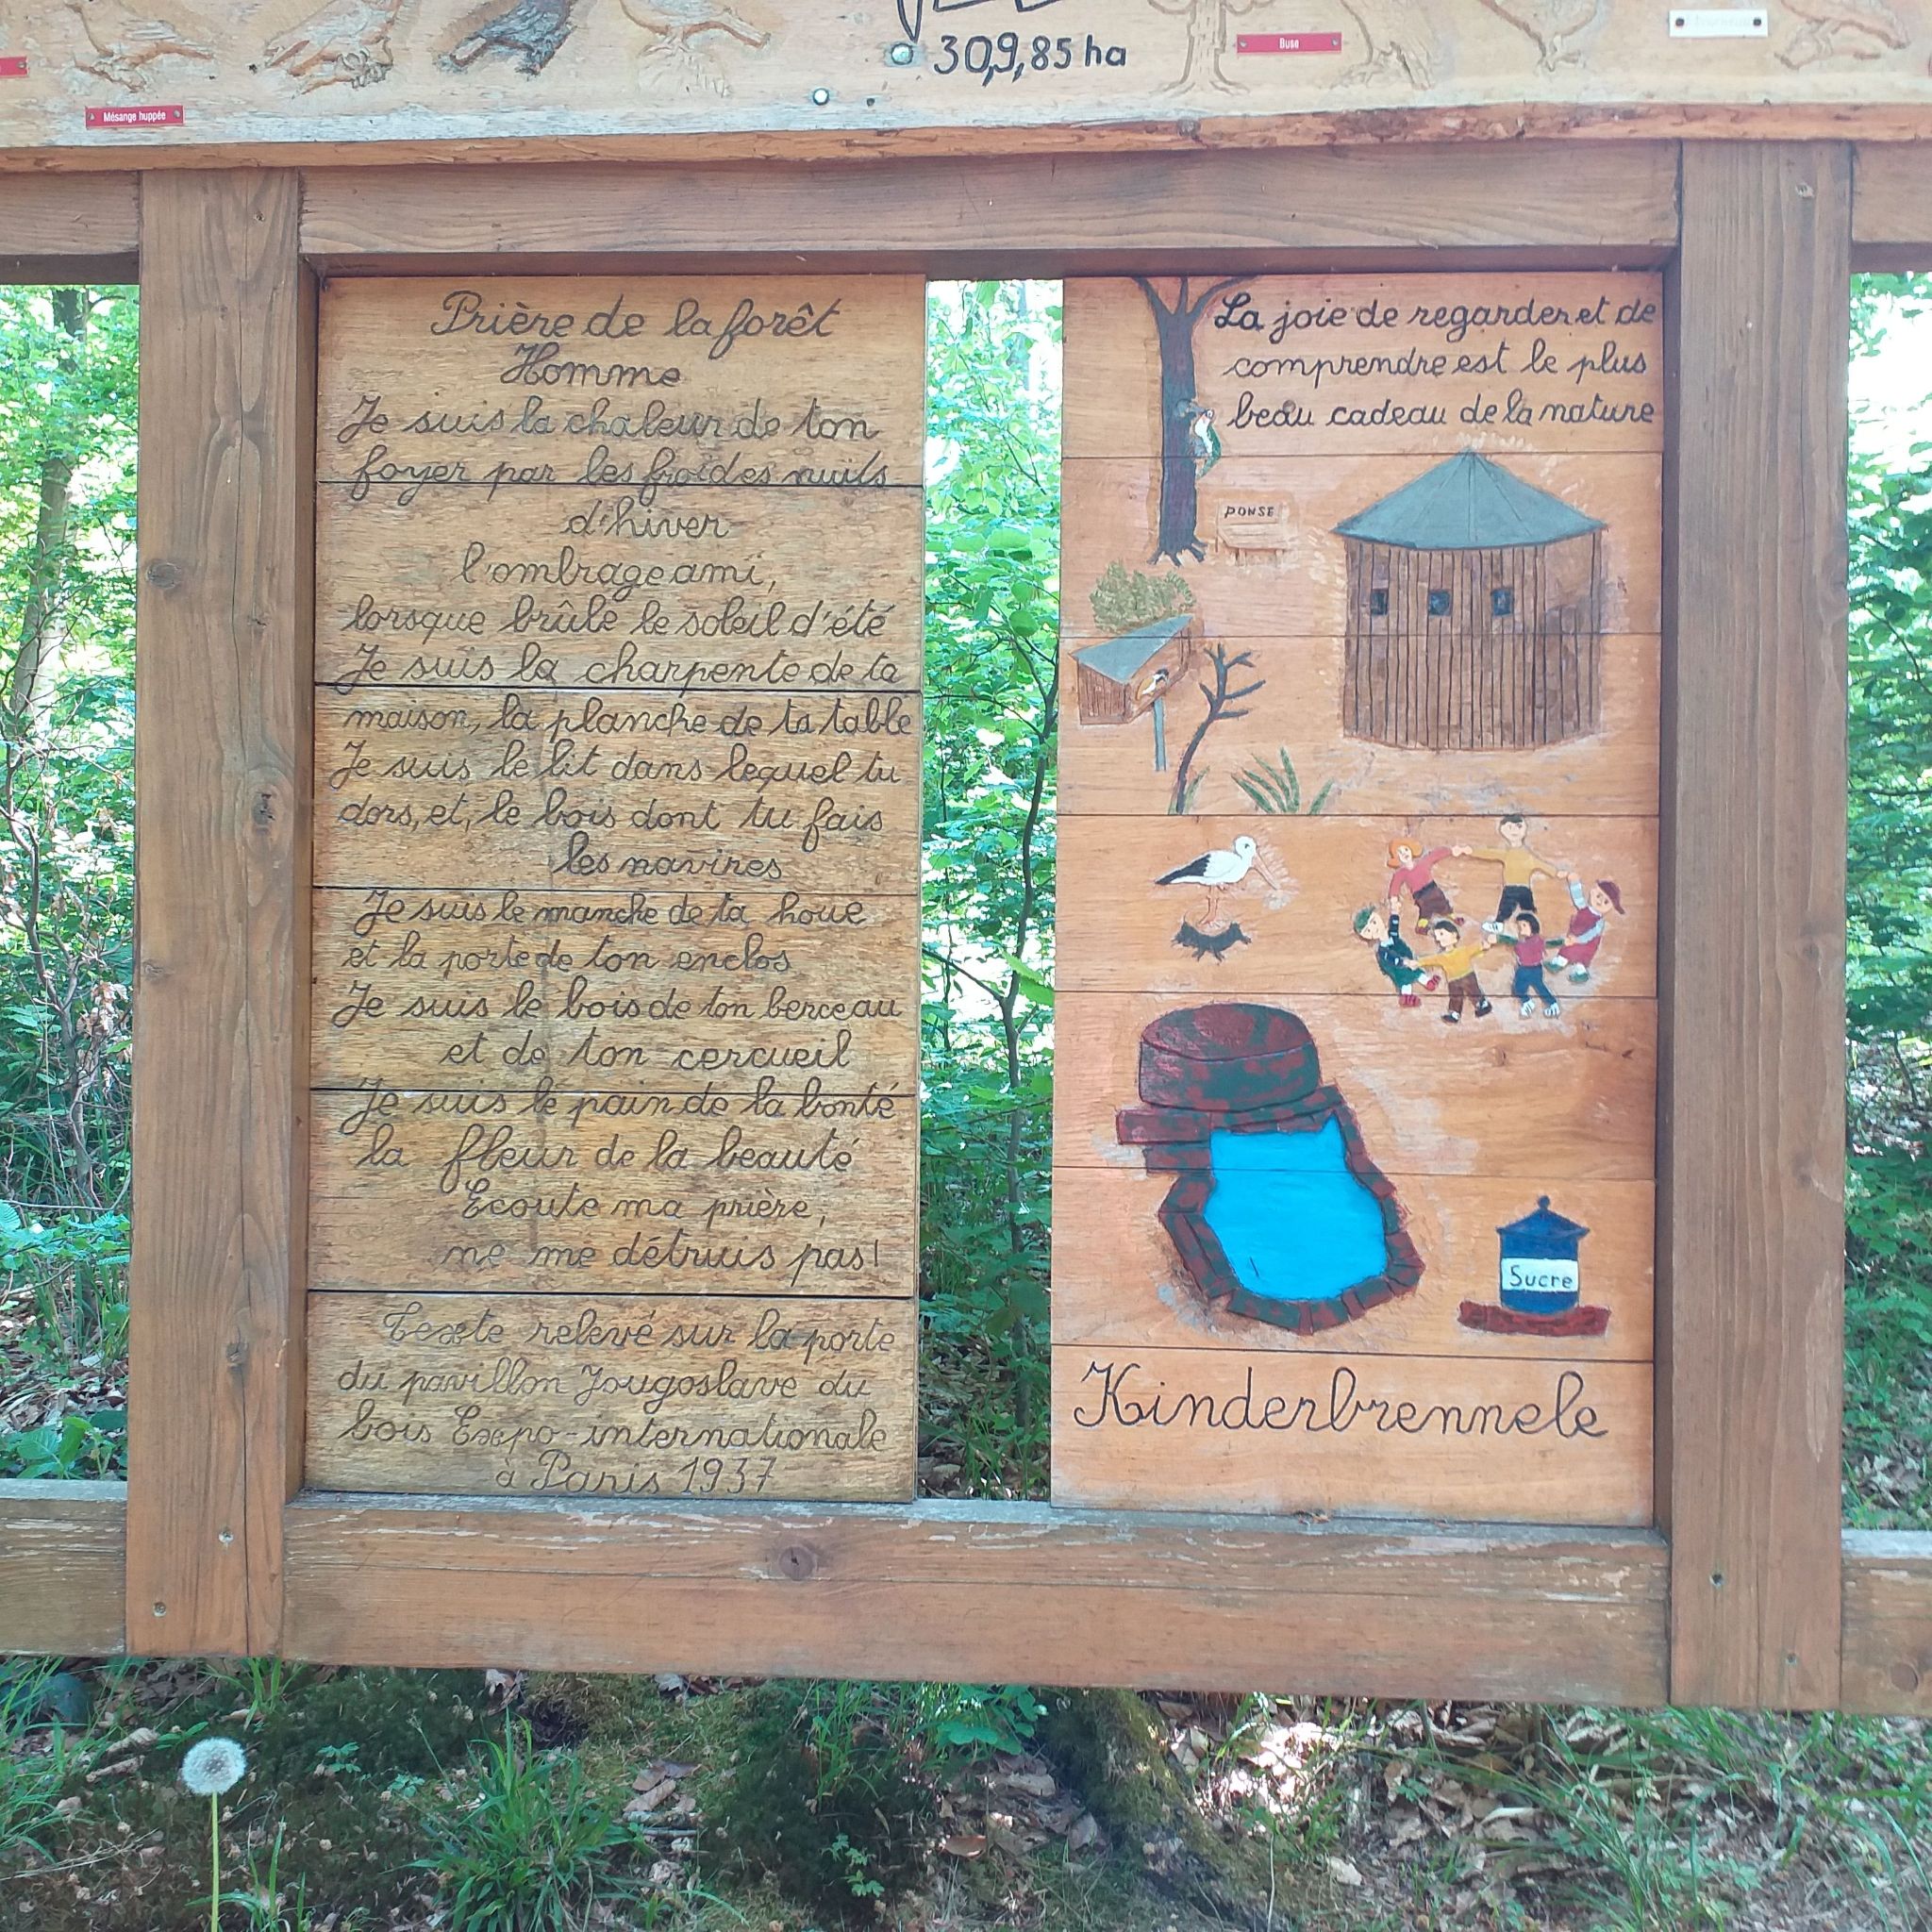 309,85 ha
Buse
Mésange huppée
Prière de la forêt
Homme
Je suis la chaleur de ton
foyer par les froides nuits
d'hiver
l'ombrage ami,
lorsque brûle le soleil d'été
Je suis la charpente de ta
maison, la planche de ta table
Je suis le lit dans lequel tu
dors, et, le bois dont tu fais
les navires
Je suis le manche de ta houe
et la porte de ton enclos
Je suis le bois de ton berceau
et de ton cercueil
Je suis le pain de la bonté
la fleur de la beauté
Ecoute ma prière,
ne me détruis pas!
Texte relevé sur la porte
du pavillon Yougoslave du
bois Expo-internationale
à Paris 1937
La joie de regarder et de
comprendre est le plus
beau cadeau de la nature
PONSE
Sucre
Kinderbrennele